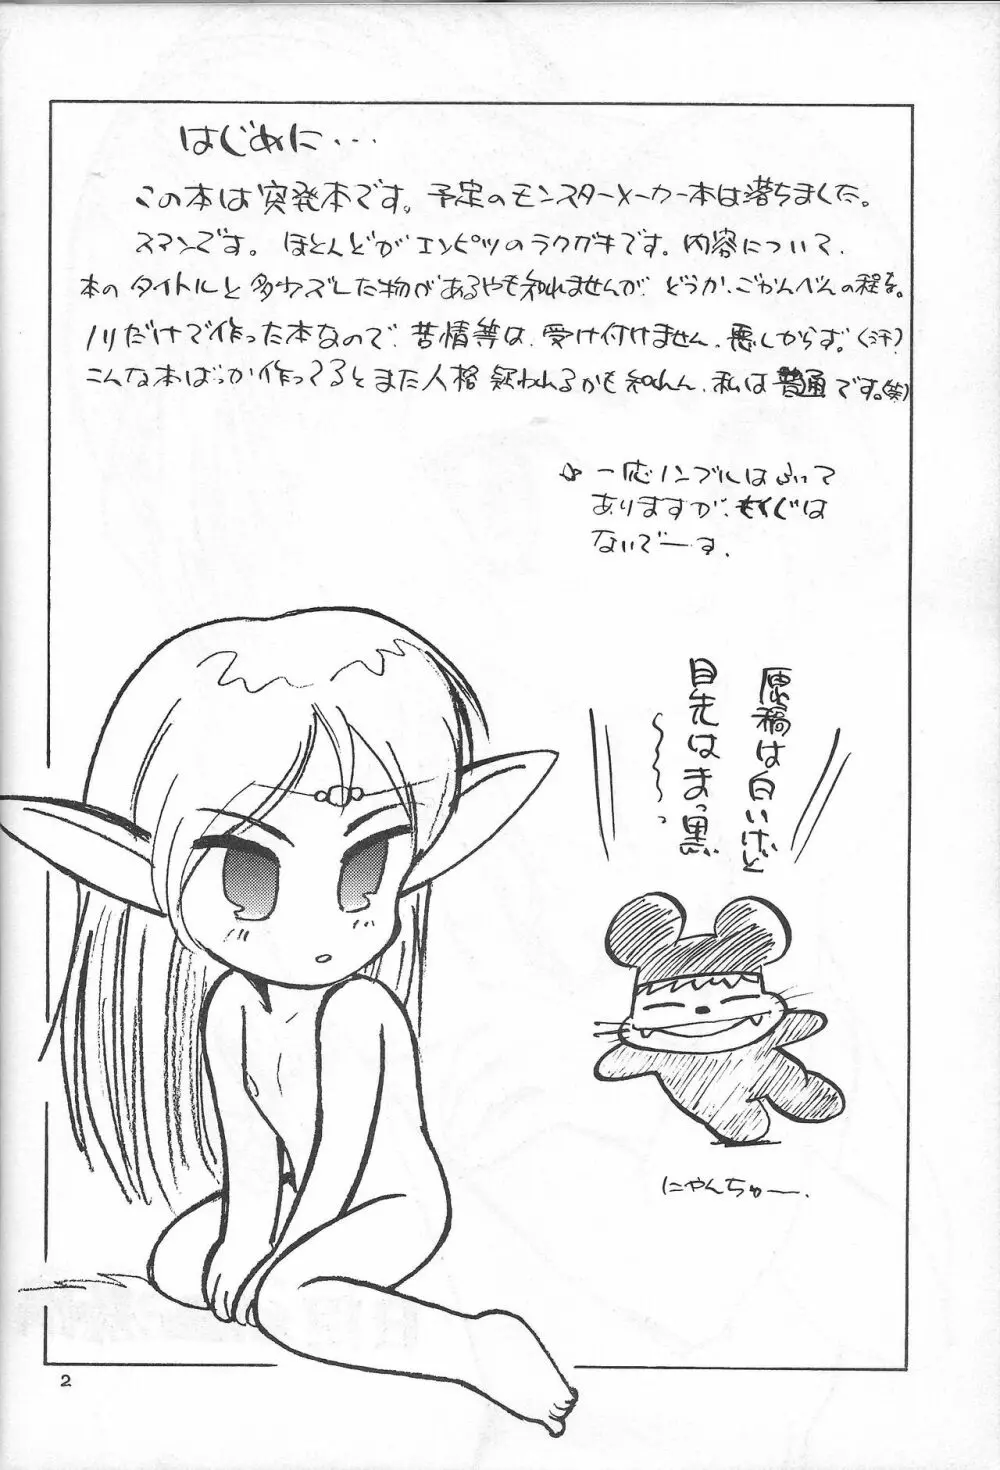 はじめに・・・
この本は突発本です。予定のモンスターメーカー本は落ちました。
スマンです。ほとんどがエンピツのラクガキです。内容について、
本のタイトルと多少ズレした物があるやも知れませんが、どうか、ごかんべんの程を。
ノリだけで作った本なので、苦情等は、受け付けません、悪しからず。(汗)
こんな本ばっか作ってるとまた人格疑われるかも知れん、私は普通です。(笑)
☆一応ノンブルはふって
ありますが、もくじは
ないでーす。
原稿は白いけど
目先はまっ黒
〜〜〜っ
にゃんちゅー、
2